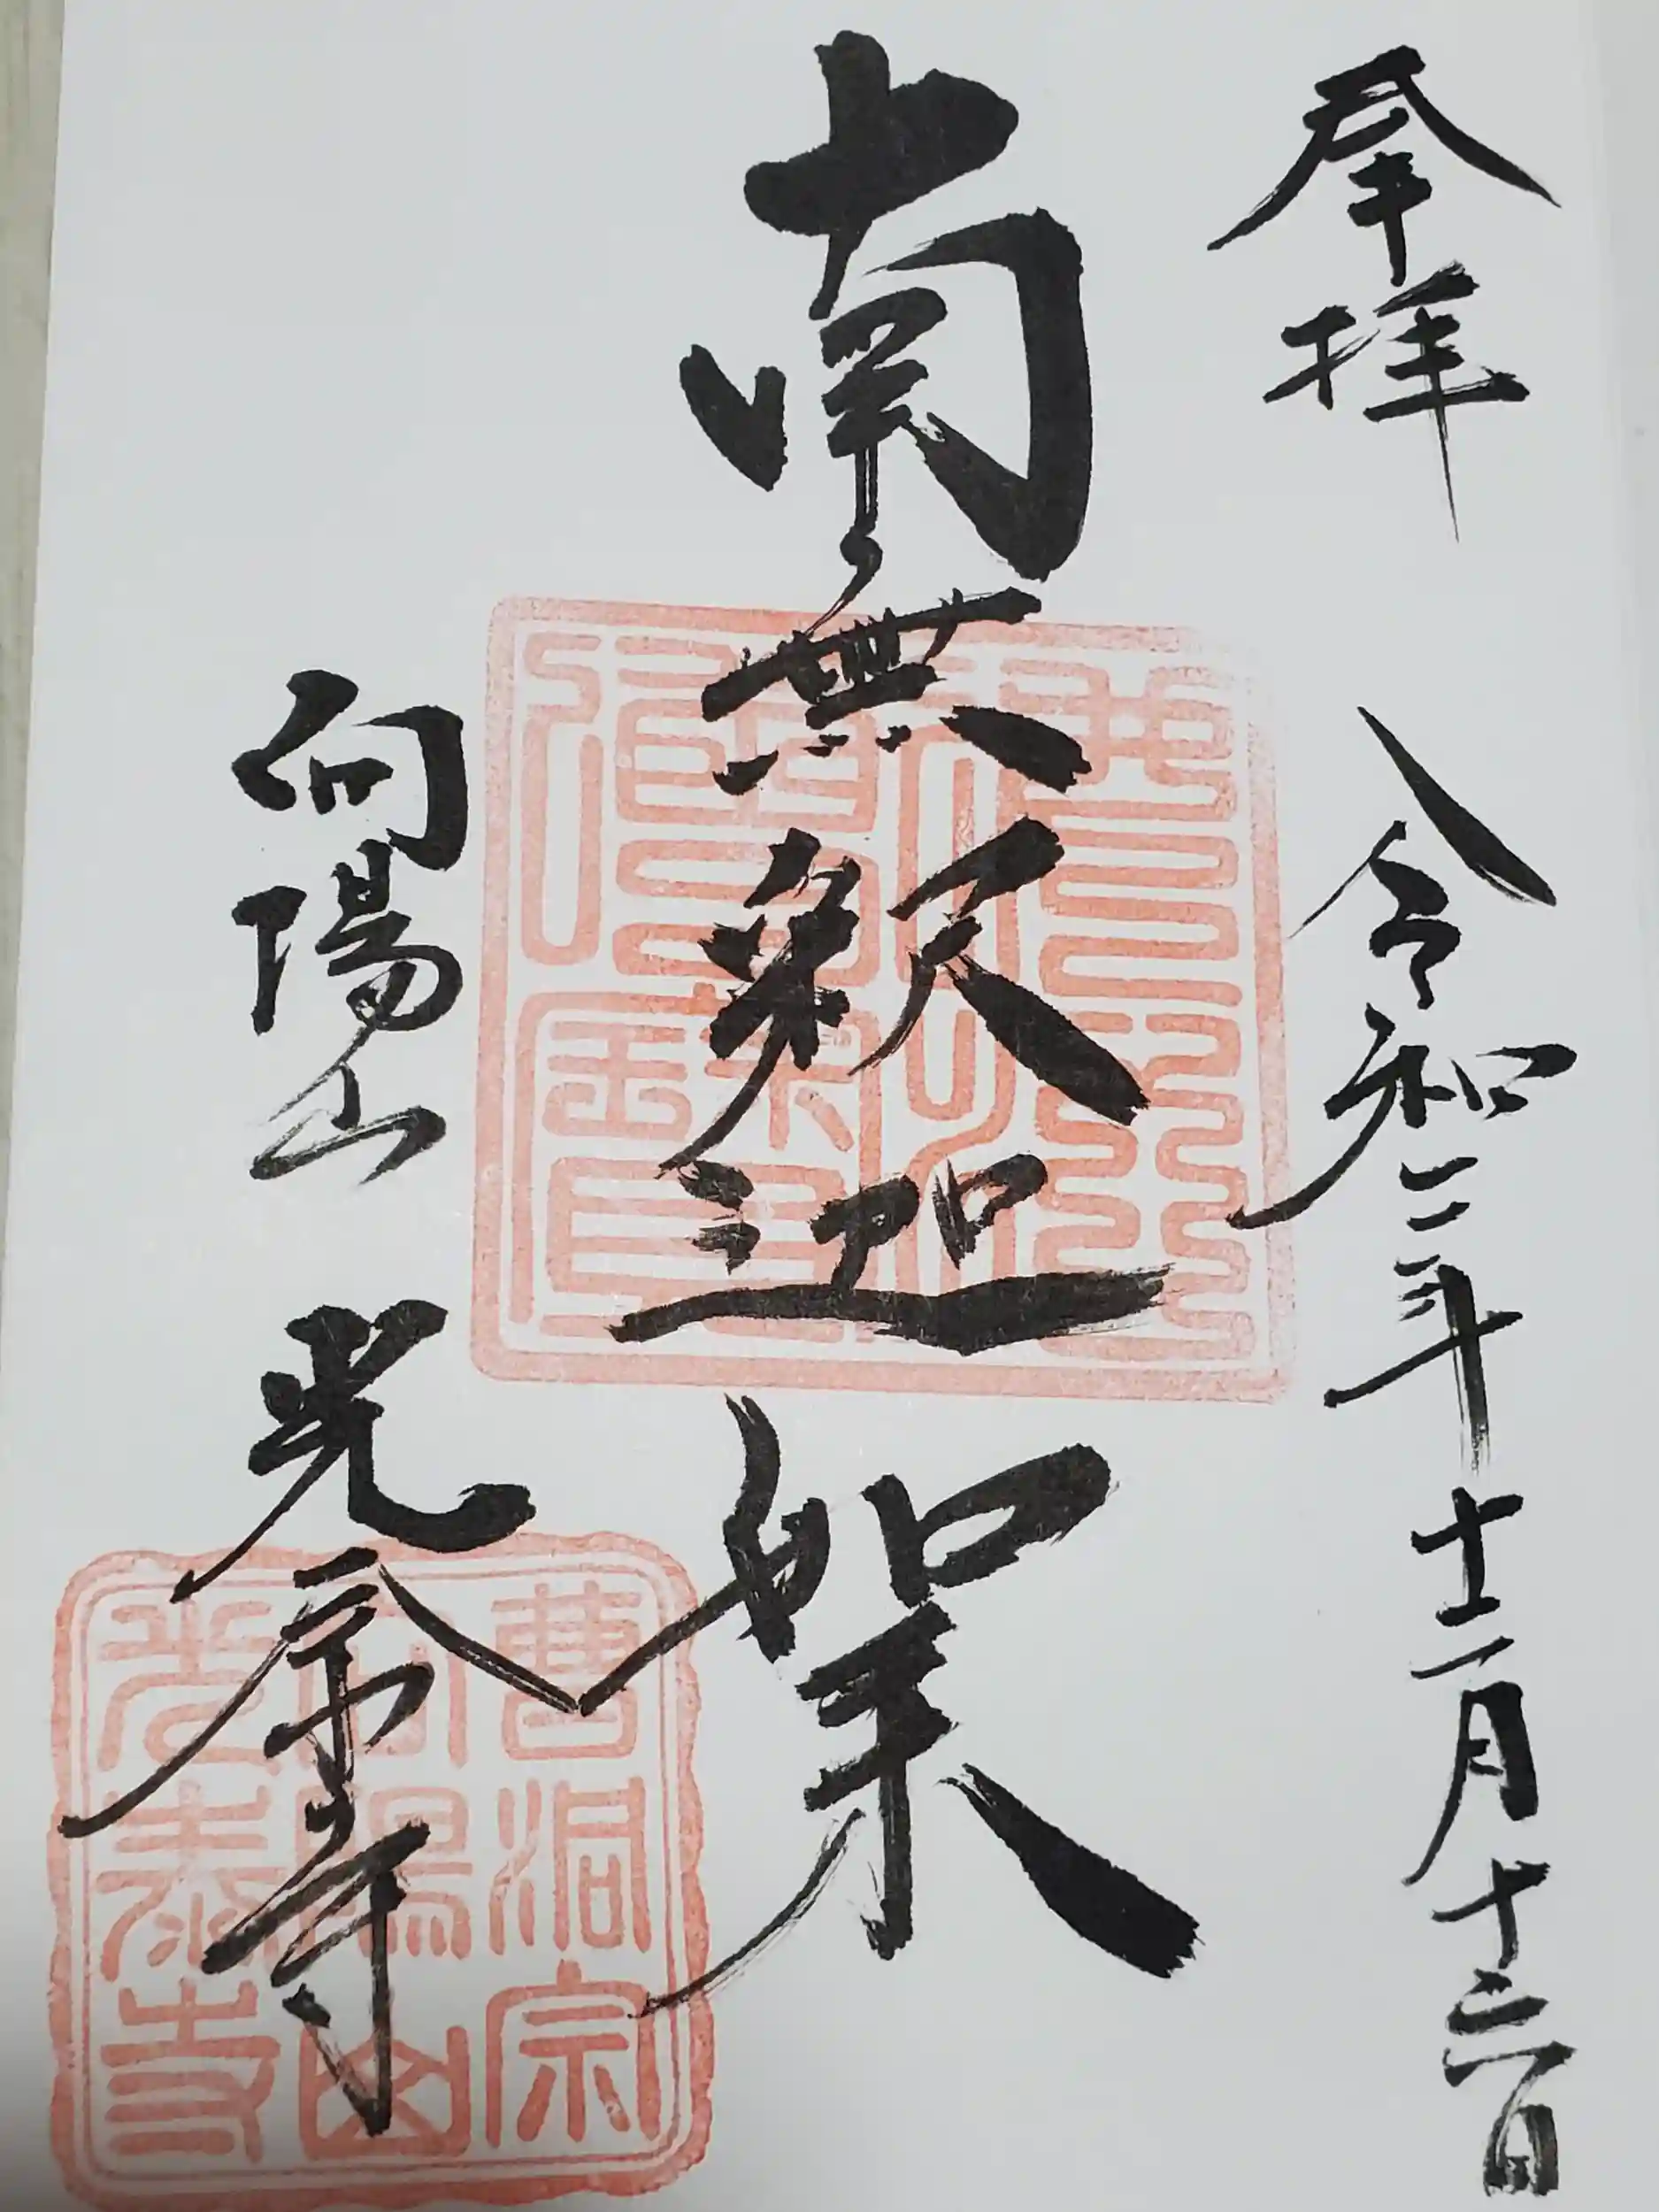 奉拝 令和二年十二月十三日
南無釈迦如来
向陽山 光泰寺
曹洞宗
向陽山
光泰寺